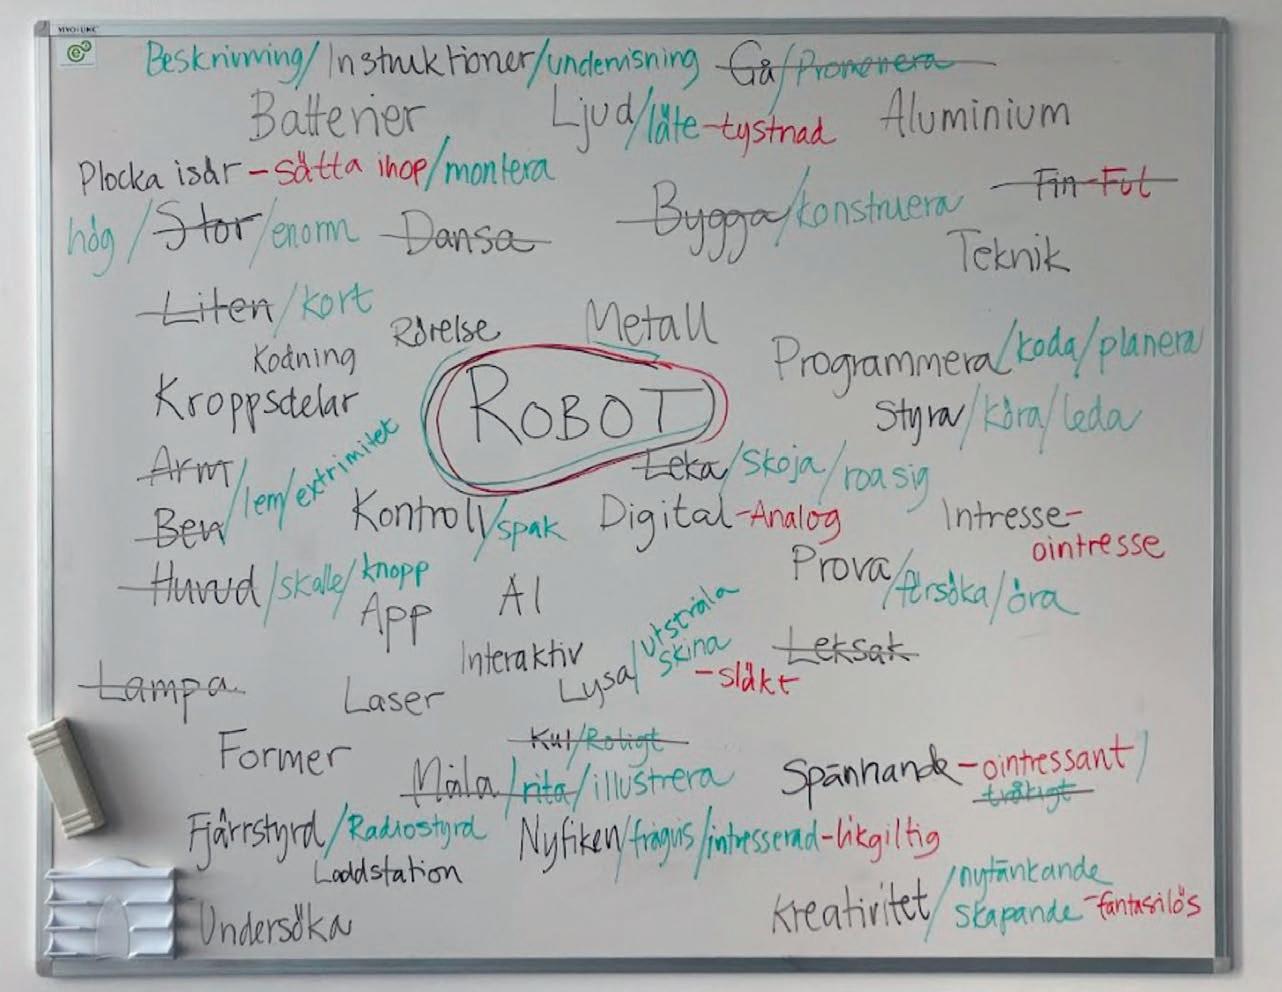 VIVO-LINK
Beskrivning/Instruktioner/undervisning Gå/Promenera
Batterier Ljud/läte-tystnad Aluminium
Plocka isär-sätta ihop/montera
Fin-Ful
hög/Stor/enorm Dansa Bygga/konstruera
Teknik
Liten/kort
Rörelse Metall
Kodning Programmera/koda/planera
Kroppsdelar ROBOT Styra/köra/leda
Arm
Ben /lem/extrimitet
Leka/skoja/roa sig
Kontroll/spak Digital-Analog Intresse-
ointresse
Huvud/skalle/knopp Prova/försöka/öra
App AI
Interaktiv Lysa/utstråla
skina
-släkt
Leksak
Lampa Laser
Kul/Roligt
Former Spännande-ointressant/
tråkigt
Måla/rita/illustrera
Fjärrstyrd/Radiostyrd Nyfiken/frågvis/intresserad-likgiltig
Laddstation
Kreativitet/nytänkande
skapande-fantasilös
Undersöka